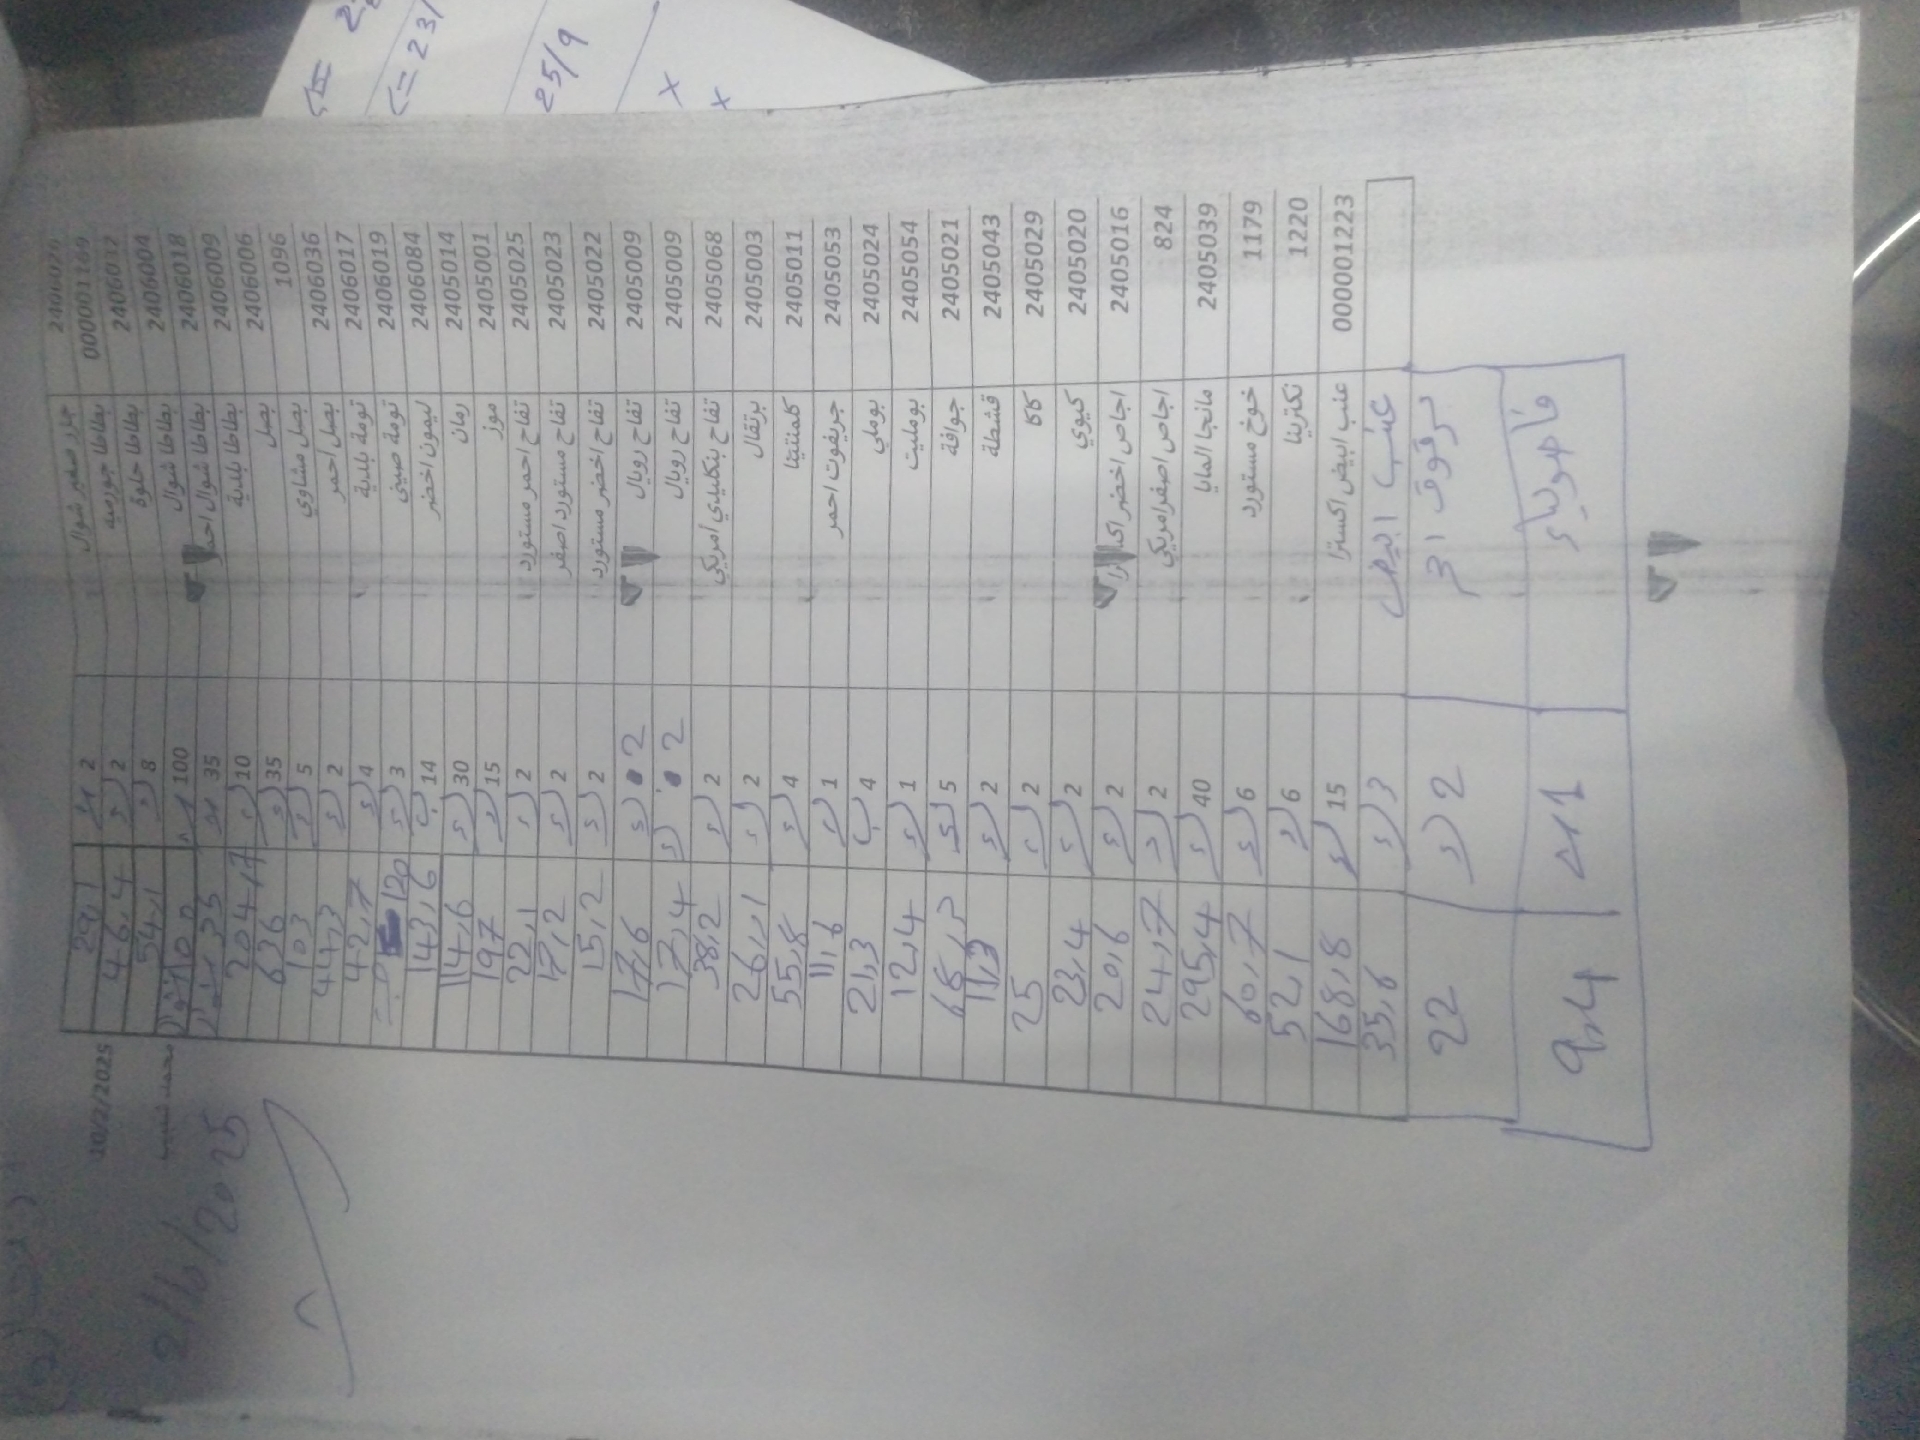 25/9
x
x
2406026 جزر صغير شوال 2 29,1
000001169 بطاطا جورميه 2 46,4
2406012 بطاطا حلوة 8 54,1
2406004 بطاطا شوال 100 100
2406018 بطاطا شوال احمر 35 35
2406009 بطاطا بلدية 10 204,17
2406006 بصل 35 636
1096 بصل مشتاوي 5 103
2406036 بصل احمر 2 44,3
2406017 تومة بلدية 4 42,7
2406019 تومة صيني 3 120
2406084 ليمون اخضر 14 143,6
2405014 رمان 30 114,6
2405001 موز 15 197
2405025 تفاح احمر مستورد 2 22,1
2405023 تفاح مستورد اصفر 2 17,2
2405022 تفاح اخضر مستورد 2 15,2
2405009 تفاح رويال 2 17,6
2405009 تفاح رويال 2 17,4
2405068 تفاح بنكليدي امريكي 2 38,2
2405003 برتقال 2 26,1
2405011 كلمنتينا 4 55,8
24050553 جريفوت احمر 1 11,6
24050024 بوملي 4 21,3
2405054 بومليت 1 12,4
2405021 جوافة 5 68,3
24050043 قشطة 2 11,3
24050029 كاكا 2 25
24050020 كيوي 2 23,4
24050016 اجاص اخضر اكسترا 2 20,6
824 اجاص اصفر امريكي 2 24,7
24050039 مانجا المايا 40 295,4
1179 خوخ مستورد 6 60,7
1220 نكترينا 6 52,1
000001223 عنب ابيض اكسترا 15 168,8
عنب ابيض 3 35,6
برقوق 2 22
1 9,4
20/2/2025
محمد شبيب
21/10/2025